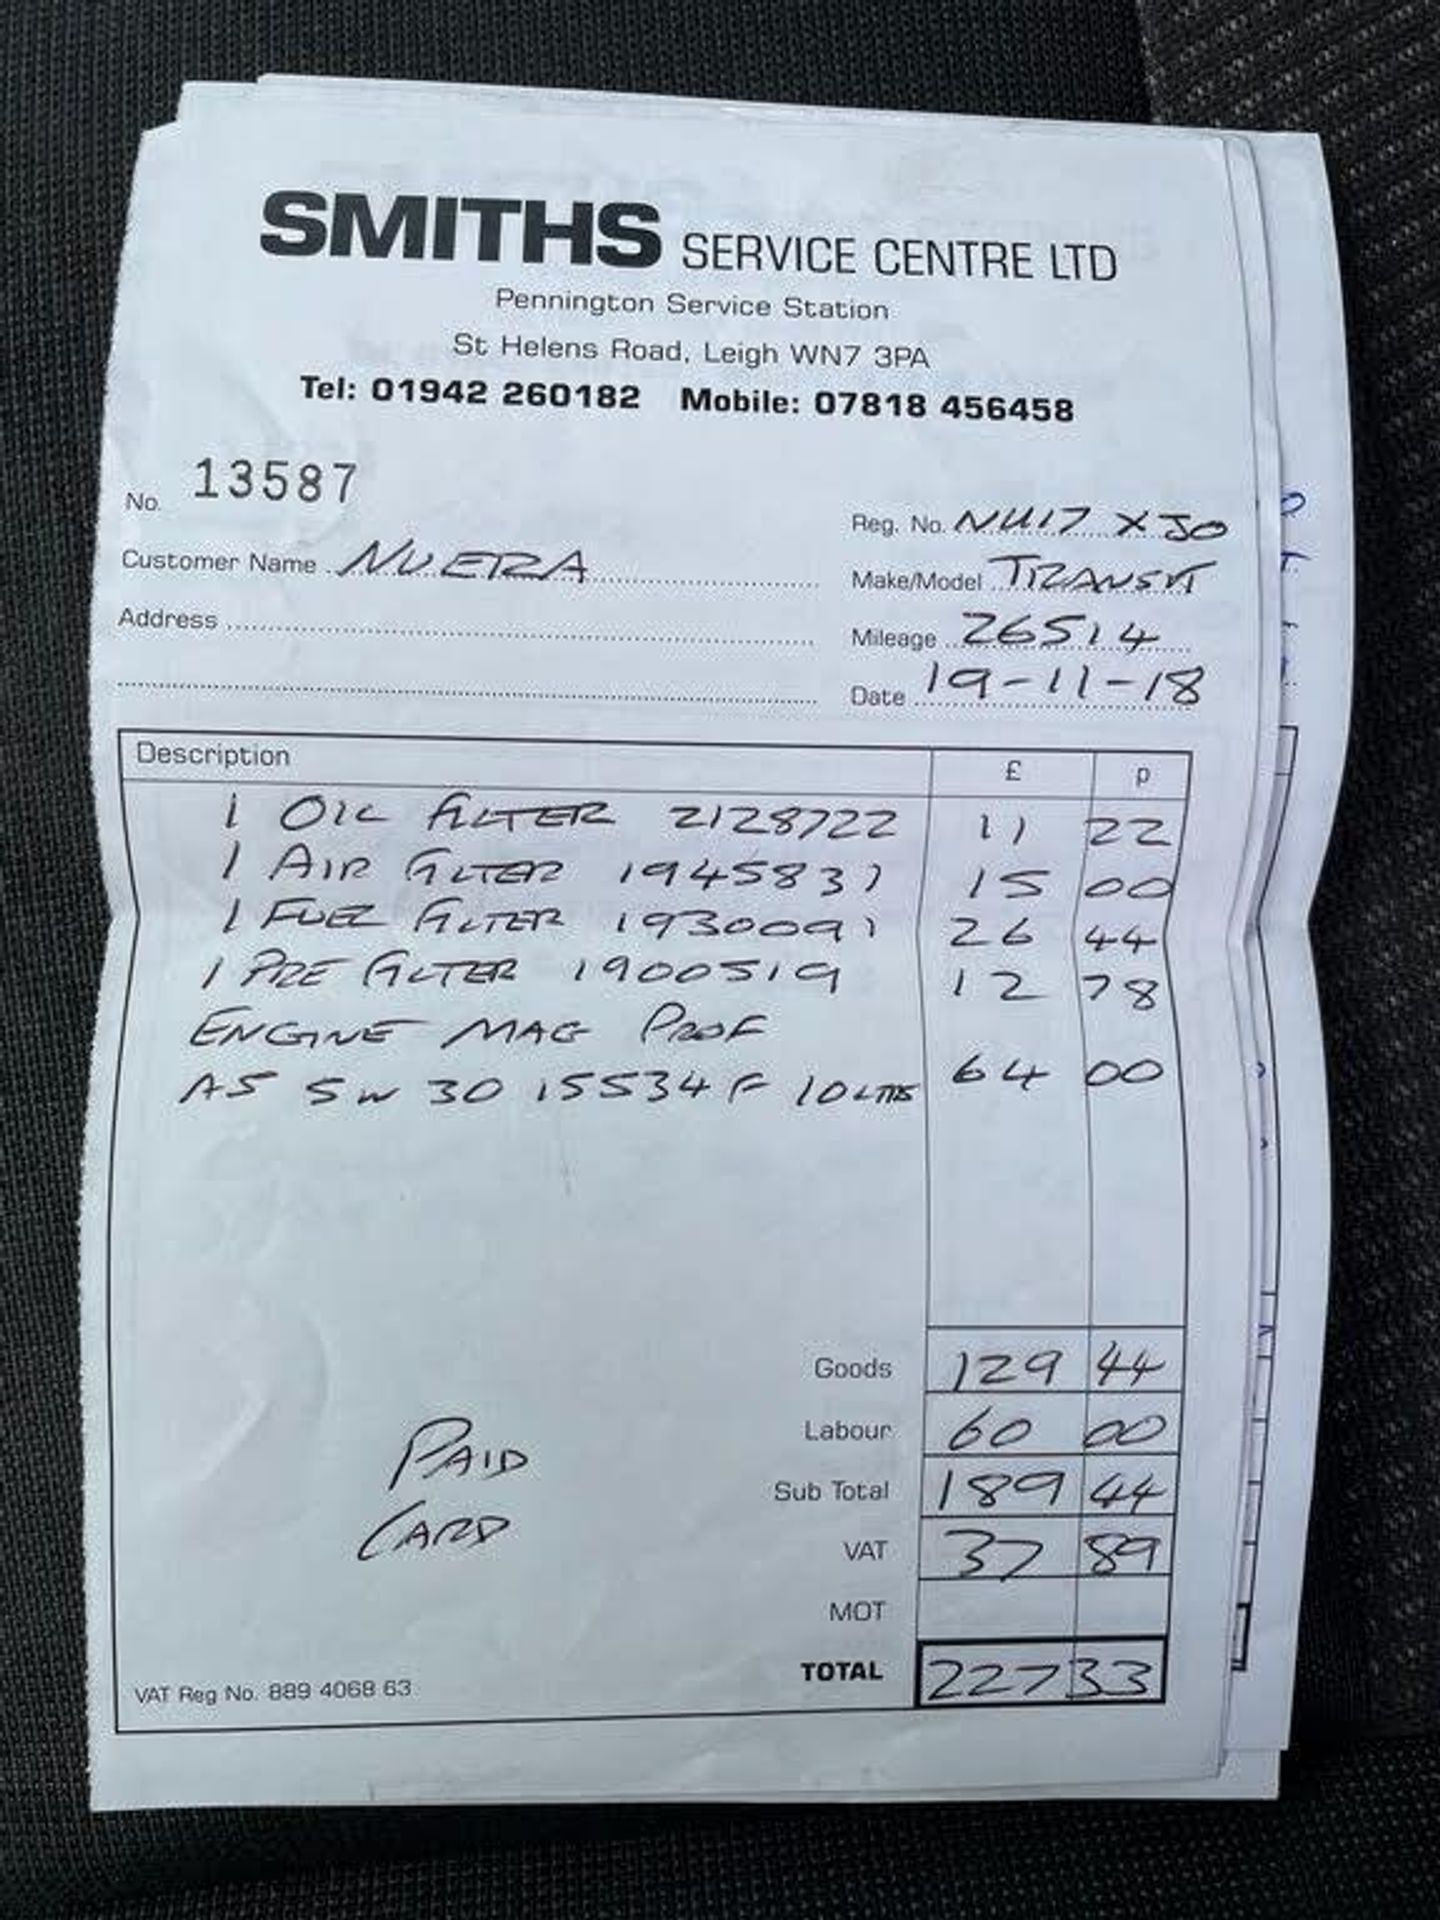 SMITHS SERVICE CENTRE LTD
Pennington Service Station
St Helens Road, Leigh WN7 3PA
Tel: 01942 260182 Mobile: 07818 456458
No. 13587
Reg. No. NU17 XJO
Customer Name NUERA
Make/Model TRANSIT
Address
Mileage 26514
Date 19-11-18
Description £ p
1 OIL FILTER 2128722 11 22
1 AIR FILTER 1945831 15 00
1 FUEL FILTER 1930091 26 44
1 PRE FILTER 1900519 12 78
ENGINE MAG PROF
A5 5W 30 15534F 10 LTRS 64 00
Goods 129 44
Labour 60 00
Sub Total 189 44
VAT 37 89
MOT
TOTAL 227 33
PAID
CARD
VAT Reg No. 889 4068 63